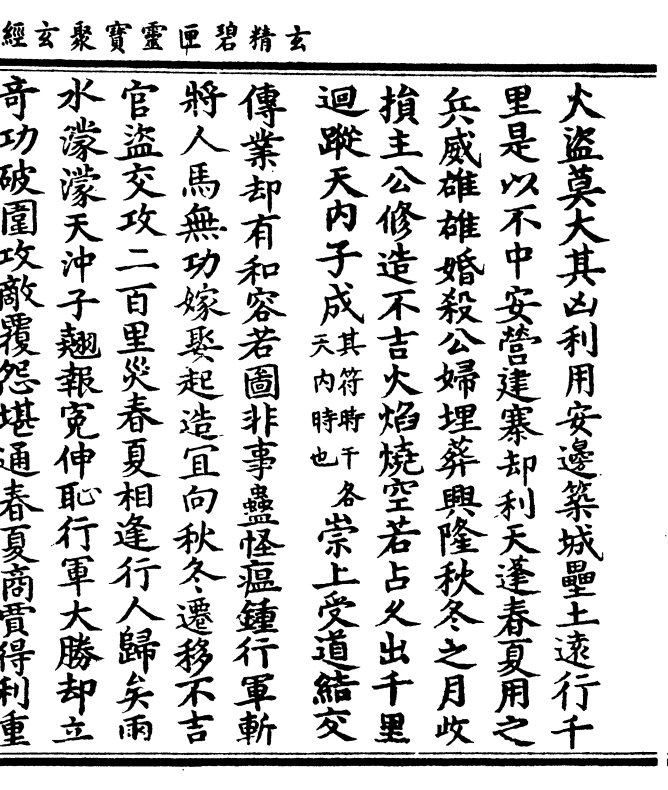 玄精碧匣靈寶聚玄經
大盜莫大其凶利用安邊築城壘土遠行千
里是以不中安營建寨却利天蓬春夏用之
兵威雄雄婚殺公婦埋葬興隆秋冬之月收
損主公修造不吉火焰燒空若占久出千里
迴蹤天內子成其符時千各天內時也崇上受道結交
傳業却有和容若圖非事蠱怪瘟鍾行軍斬
將人馬無功嫁娶起造冝向秋冬遷移不吉
官盜交攻二百里災春夏相逢行人歸矣雨
水濛濛天沖子翹報冤伸恥行軍大勝却立
竒功破圍攻敵覆怨堪通春夏商賈得利重